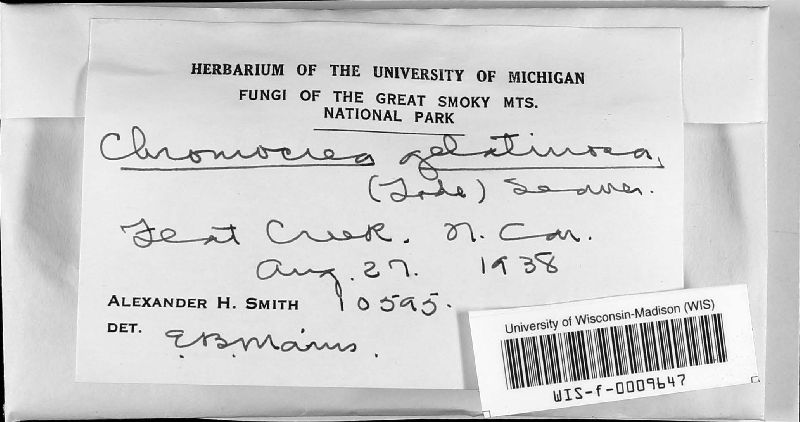 HERBARIUM OF THE UNIVERSITY OF MICHIGAN
FUNGI OF THE GREAT SMOKY MTS.
NATIONAL PARK
Chromocrea gelatinosa,
(Tode) Seaver.
Creek. N. Car.
Aug. 27. 1938
ALEXANDER H. SMITH 10595.
DET. E.B. Mains.
University of Wisconsin-Madison (WIS)
WIS-f-0009647